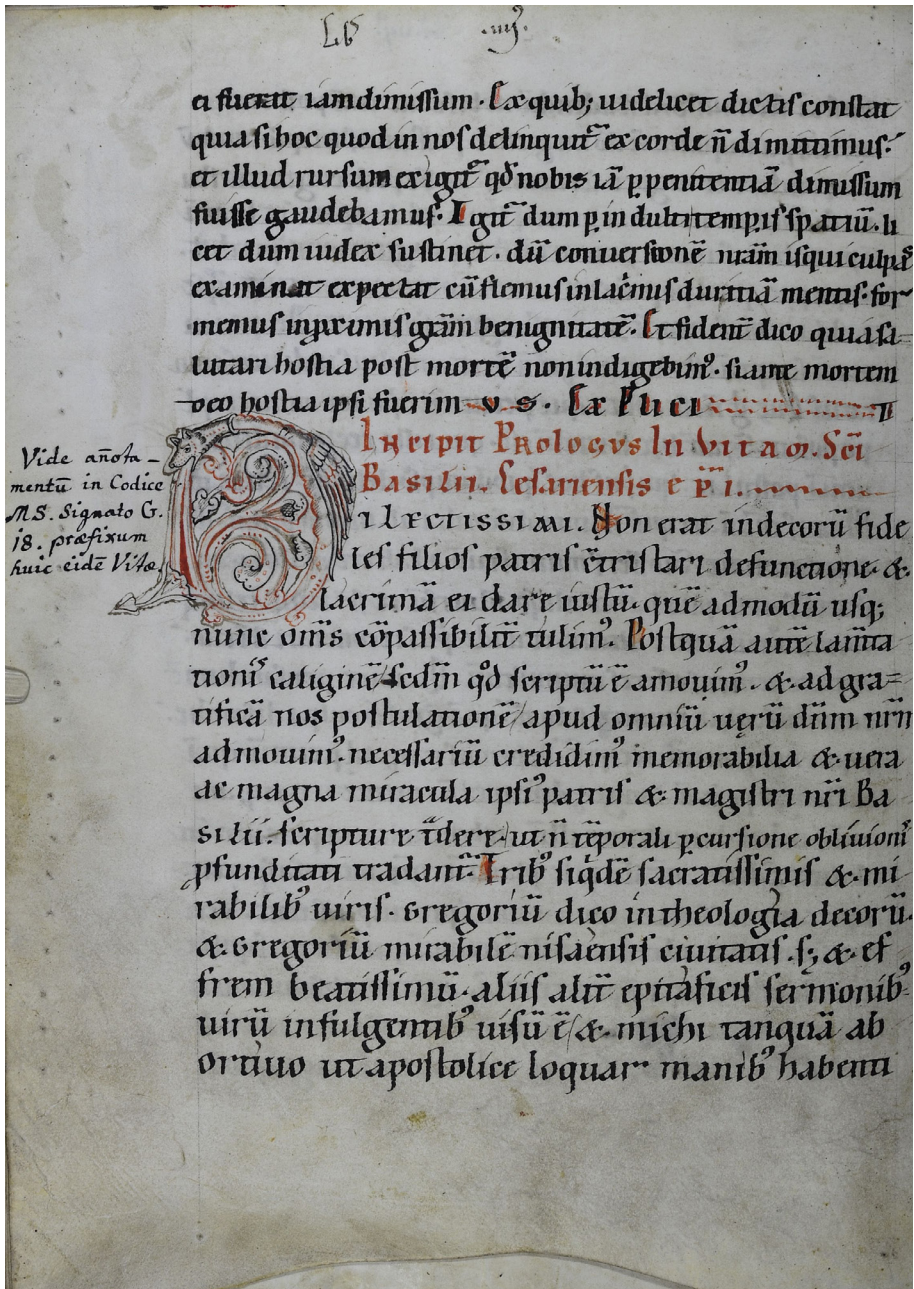 LG .iiij.
ei fuerat iam dimissum. Ex quib; uidelicet dictis constat
quia si hoc quod in nos delinquit̄ ex corde n̄ dimittimus.
et illud rursum exigit̄ qđ nobis iā ꝑ penitentiā dimissum
fuisse gaudebamus. Igit̄ dum ꝑ indulti temꝑis spatiū. li
cet dum iudex sustinet. dū conuersionē nr̄am is qui culpas
examinat expectat cū flemus in lac̄mis duritiā mentis. for
memus in ꝓximis gr̄am benignitatē. Et fident̄ dico quia sa=
lutari hostia post mortē non indigebimꝰ. si ante mortem
deo hostia ipsi fuerimus.
Incipit Prologus In Vitam. Sc̄i
Basilii. Cesariensis ep̄i.
Dilectissimi. Non erat indecorū fide
les filios patris c̄tristari defunctione. &
lacrimā ei dare iustū. quē ad modū usq;
nunc om̄s cōpassibilit̄ tulimꝰ. Postquā autē lam̄ta
tionis caliginē sedm̄ qđ scriptū ē amouimꝰ. & ad gra=
tificā nos postulationē apud omniū uerū dūm nr̄m
admouimꝰ. necessariū credidimꝰ memorabilia & uera
ac magna miracula ipsiꝰ patris & magistri nr̄i Ba
silii. scripture t̄dere. ut n̄ tēporali ꝑcursione obliuionis
ꝓfunditati tradant̄. Tribꝰ siq̄dē sacratissimis & mi
rabilibꝰ uiris. Gregoriū dico in theologia decorū.
& Gregoriū mirabilē nisaensis ciuitatis. s; & ef
frem beatissimū. aliis alit̄ epitaficis sermonibꝰ
uirū infulgentibꝰ uisū ē & michi tanquā ab
ortiuo ut apostolice loquar manibꝰ habenti
Vide añota-
mentū in Codice
MS. Signato G.
18. præfixum
huic eidē Vitæ